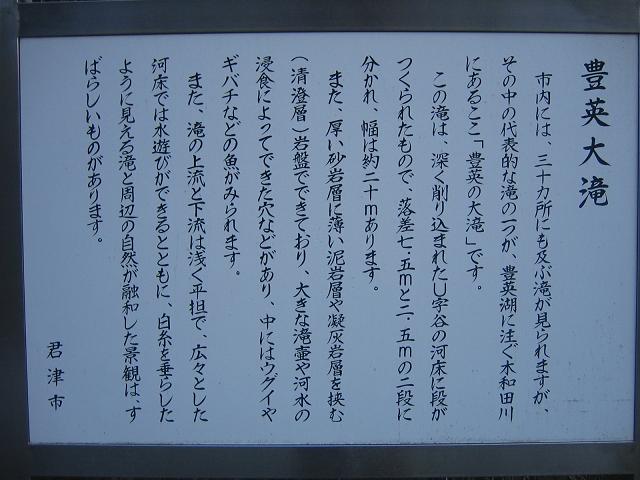 豊英大滝
市内には、三十カ所にも及ぶ滝が見られますが、
その中の代表的な滝の一つが、豊英湖に注ぐ木和田川
にあるここ「豊英の大滝」です。
この滝は、深く削り込まれたU字谷の河床に段が
つくられたもので、落差七・五mと二・五mの二段に
分かれ、幅は約二十mあります。
また、厚い砂岩層に薄い泥岩層や凝灰岩層を挟む
(清澄層)岩盤でできており、大きな滝壷や河水の
浸食によってできた穴などがあり、中にはウグイや
ギバチなどの魚がみられます。
また、滝の上流と下流は浅く平担で、広々とした
河床では水遊びができるとともに、白糸を垂らした
ように見える滝と周辺の自然が融和した景観は、す
ばらしいものがあります。
君津市